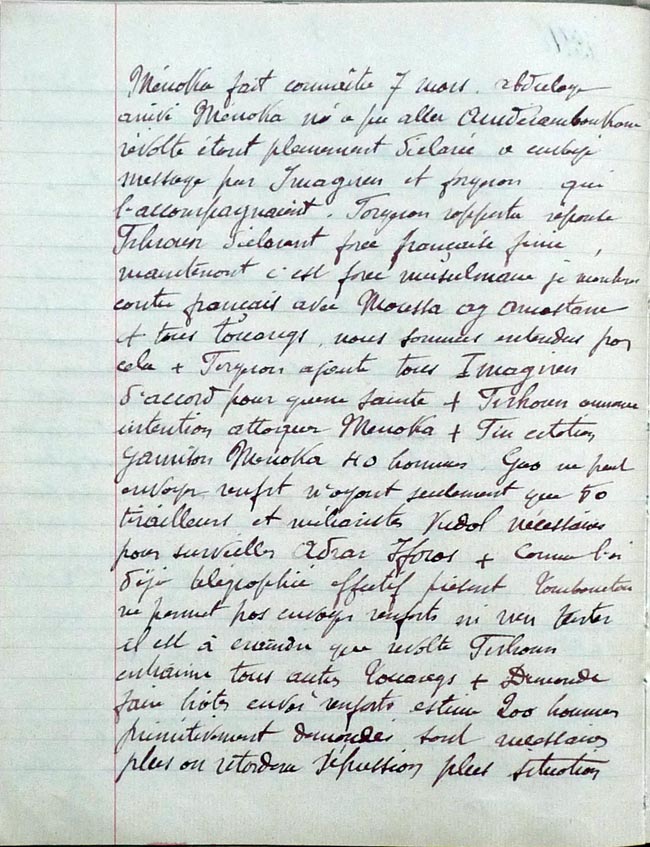 Ménoka fait connaître 7 mars. Abdulaye
arrivé Menoka n'a pu aller Anderamboukane
révolte étant pleinement déclarée a envoyé
message par Imagiren et forgeron qui
l'accompagnaient. Forgeron rapporte réponse
Firhoun déclarant force française finie,
maintenant c'est force musulmane je marcherai
contre français avec Moussa ag Amastane
et tous touaregs, nous sommes entendus pour
cela + Forgeron ajoute tous Imagiren
d'accord pour guerre sainte + Firhoun annonce
intention attaquer Menoka + Fin citation
Garnison Menoka 40 hommes. Gao ne peut
envoyer renfort n'ayant seulement que 50
tirailleurs et méharistes Kidal nécessaires
pour surveiller Adrar Iforas + Comme l'ai
déjà télégraphié effectif présent Tombouctou
ne permet pas envoyer renforts ni rien tenter
il est à craindre que révolte Firhoun
entraine tous autres Touaregs + Demande
faire hâter envoi renforts estime 200 hommes
primitivement demandés sont nécessaires
plus on retardera répression plus situation